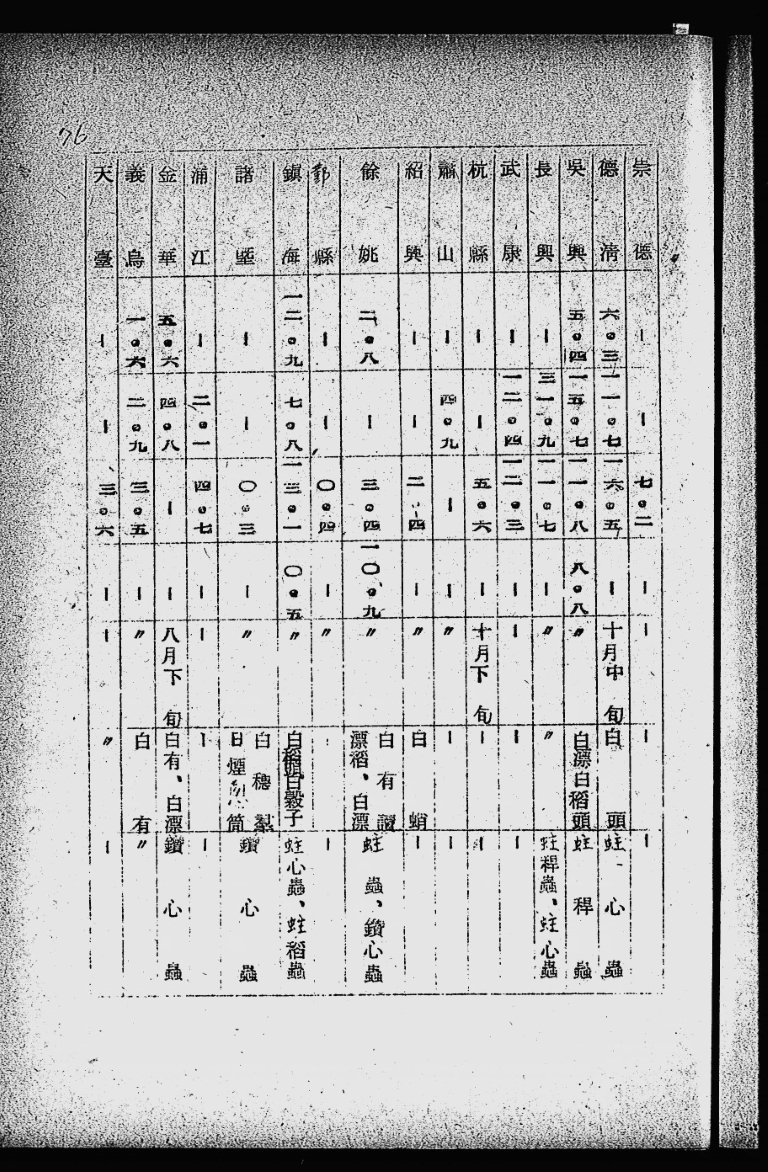 76
崇德 | | 七.二 | | | |
德清 六.三 一一.七 一六.五 | 十月中旬 白頭 蛀心蟲
吳興 五.四 一五.七 一一.八 八.八 〃 白漂白稻頭 蛀稈蟲
長興 | 三一.九 一一.七 | 〃 〃 蛀稈蟲、蛀心蟲
武康 | 一二.四 一二.三 | | | |
杭縣 | | 五.六 | 十月下旬 | |
蕭山 | 四.九 | | 〃 | |
紹興 | | 二.四 | 〃 白蛸 |
餘姚 二.八 | 三.四 一〇.九 〃 白有 漂稻、白漂 蛀蟲、鑽心蟲
鄞縣 | | 〇.四 | 〃 | |
鎮海 一二.九 七.八 一三.一 〇.五 〃 白稻頭白穀子 蛀心蟲、蛀稻蟲
諸曁 | | 〇.三 | 〃 白穗 煙筒 鑽心蟲
浦江 | 二.一 四.七 | | | |
金華 五.六 四.八 | | 八月下旬 白有、白漂 鑽心蟲
義烏 一.六 二.九 三.五 | 〃 白有 〃
天臺 | | 三.六 | | 〃 |